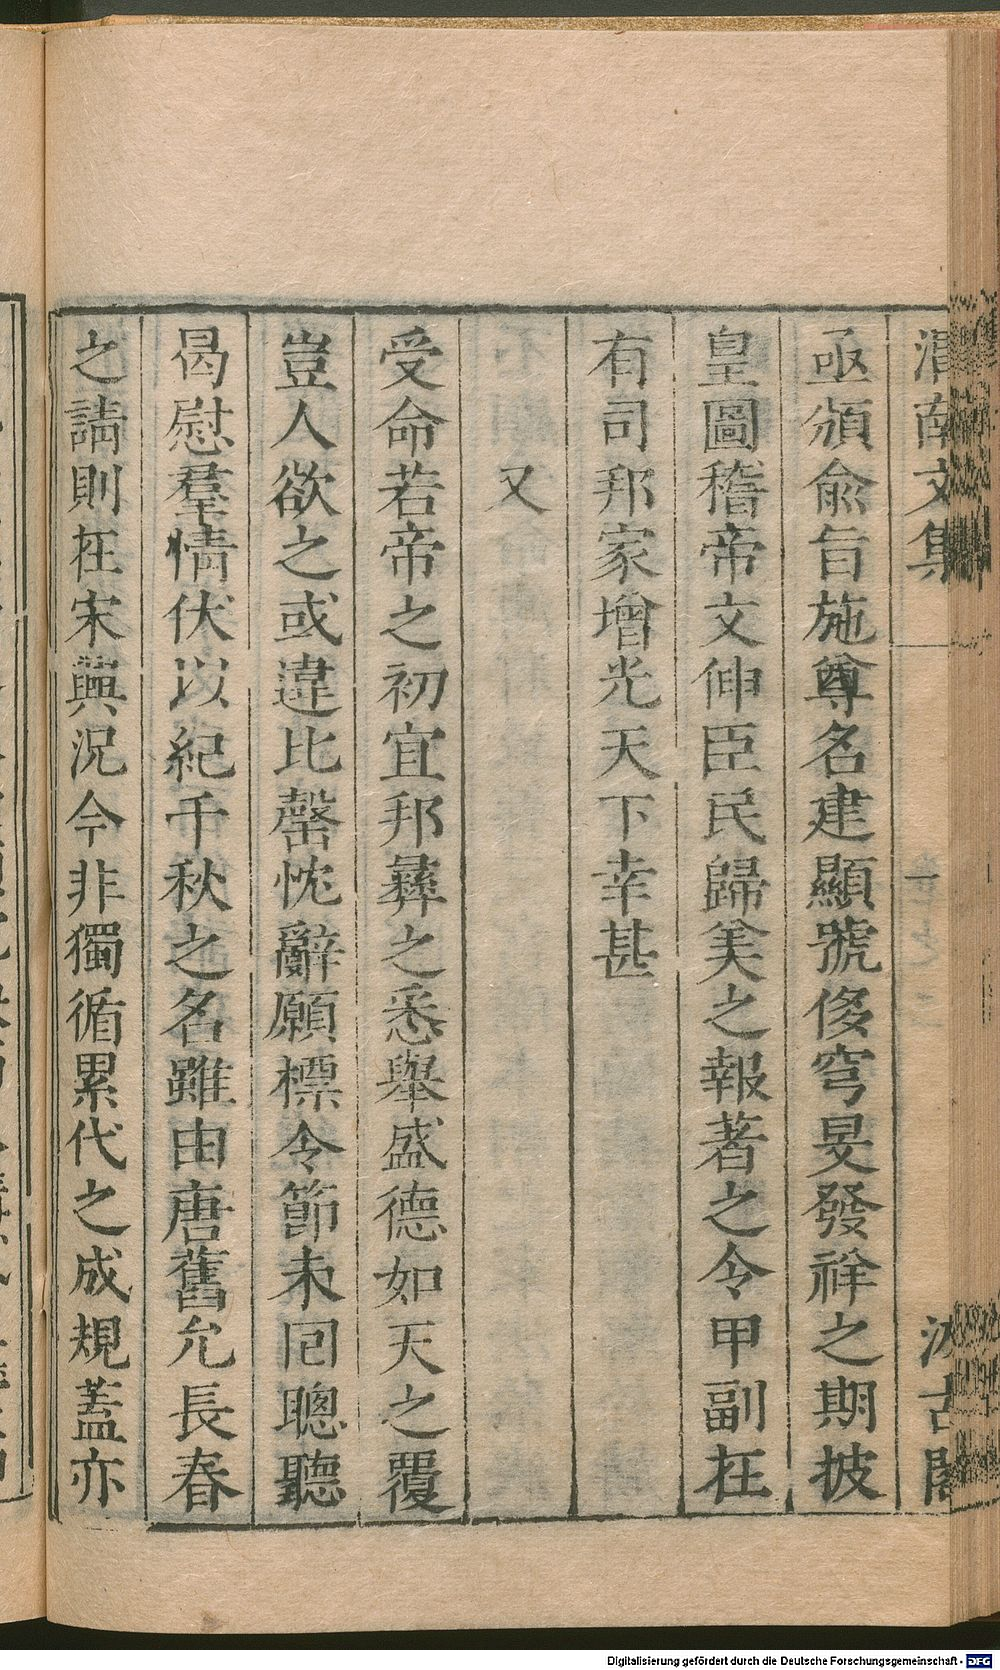 渭南文集 卷一 二 汲古閣
亟頒俞旨施尊名建顯號侈穹旻發祥之期披
皇圖稽帝文伸臣民歸美之報著之令甲副在
有司邦家增光天下幸甚
又
受命若帝之初宜邦彝之悉舉盛德如天之覆
豈人欲之或違比罄忱辭願標令節未囘聰聽
曷慰羣情伏以紀千秋之名雖由唐舊允長春
之請則在宋興況今非獨循累代之成規蓋亦
Digitalisierung gefördert durch die Deutsche Forschungsgemeinschaft - DFG